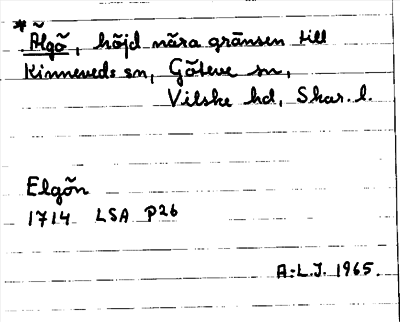 * Älgö, höjd nära gränsen till
Kinneveds sn, Göteve sn,
Vilske hd, Skar. l.
Elgön
1714 LSA P26
A-L.J. 1965.